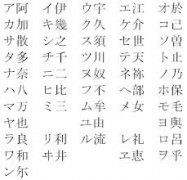 ア阿 イ伊 ウ宇 エ江 オ於
カ加 キ幾 ク久 ケ介 コ己
サ散 シ之 ス須 セ世 ソ曽
タ多 チ千 ツ川 テ天 ト止
ナ奈 ニ二 ヌ奴 ネ祢 ノ乃
ハ八 ヒ比 フ不 ヘ部 ホ保
マ万 ミ三 ム牟 メ女 モ毛
ヤ也 ユ由 ヨ與
ラ良 リ利 ル流 レ礼 ロ呂
ワ和 ヰ井 ヱ恵 ヲ乎
ン尔